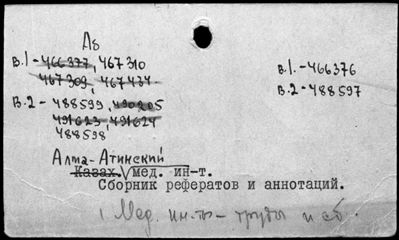 Аб
в.1-466377, 467310
467309, 467434
в.1.-466376
В.2-488599, 490205
491623, 491624
488598
в.2-488597
Алма-Атинский
Казах. мед. ин-т.
Сборник рефератов и аннотаций.
Мед. ин-ты - труды и сб.